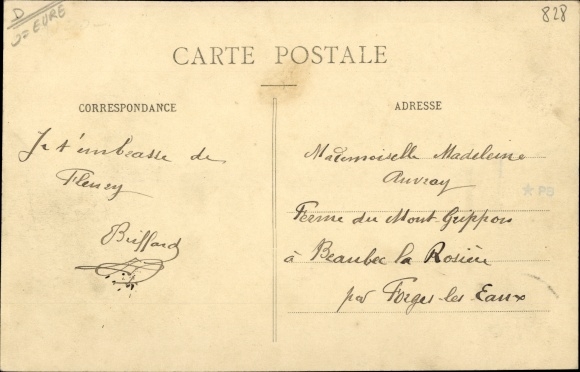 D
EURE
828
CARTE POSTALE
CORRESPONDANCE
ADRESSE
Je t'embrasse de
Fleury
Briffard
Mademoiselle Madeleine
Auvray
Ferme du Mont Grippon
à Beaubec la Rosière
par Forges les Eaux
PS